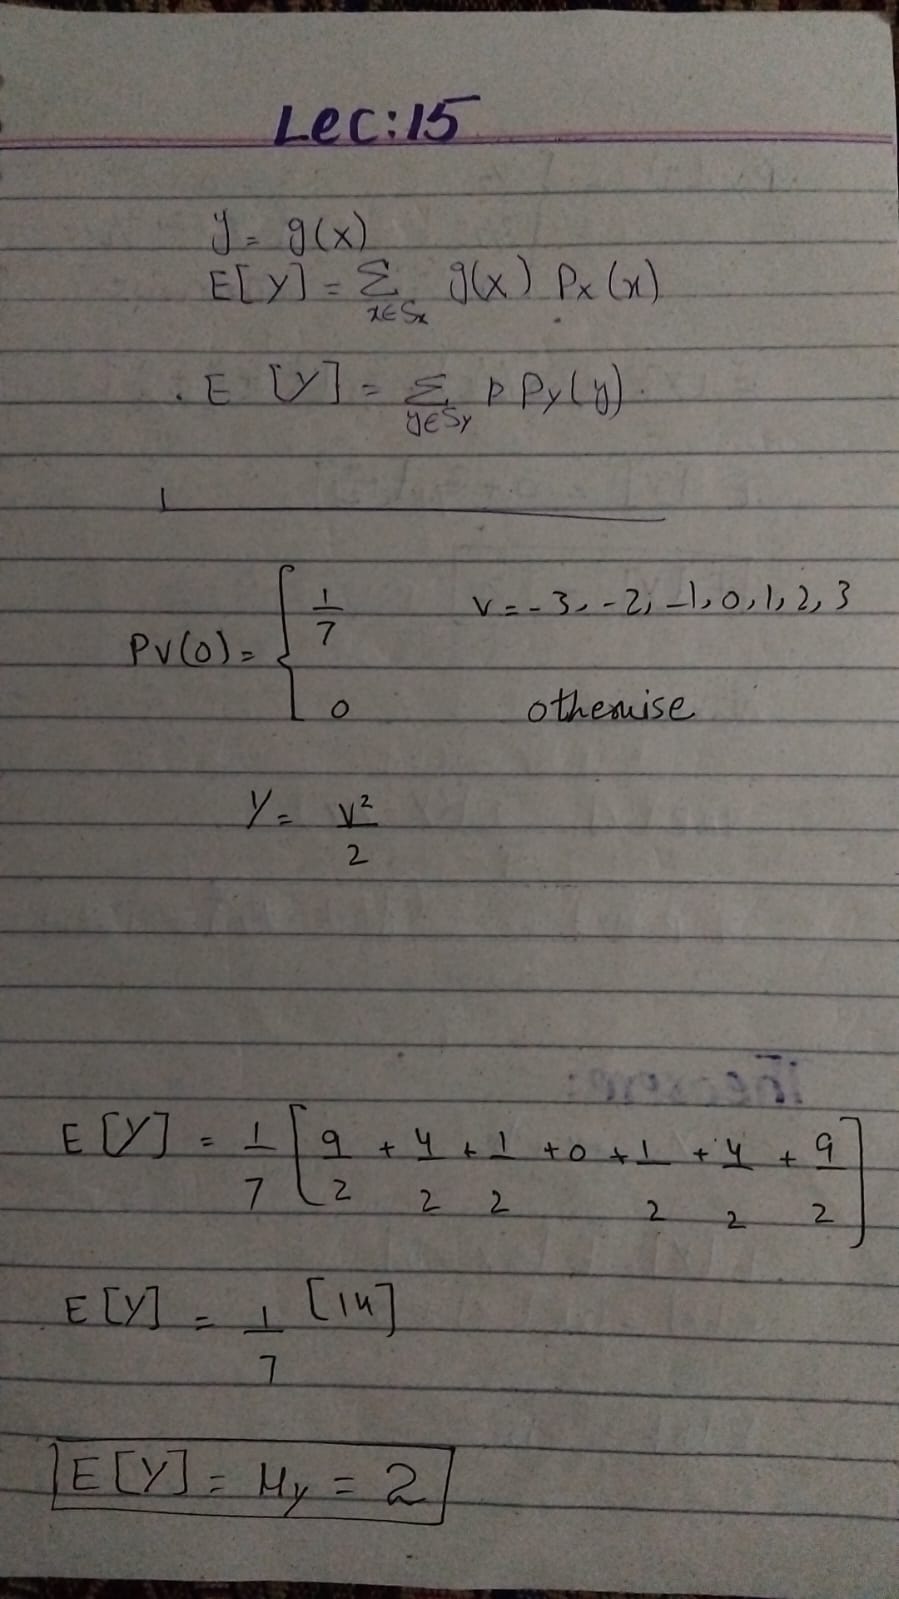 Lec:15
y = g(x)
E[Y] = Σ g(x) Px(x)
x∈Sx
. E [Y] = Σ p Py(y).
y∈Sy
Pv(0) = { 1/7 v = -3, -2, -1, 0, 1, 2, 3
0 otherwise
Y = v²/2
E[Y] = 1/7 [9/2 + 4/2 + 1/2 + 0 + 1/2 + 4/2 + 9/2]
E[Y] = 1/7 [14]
E[Y] = My = 2